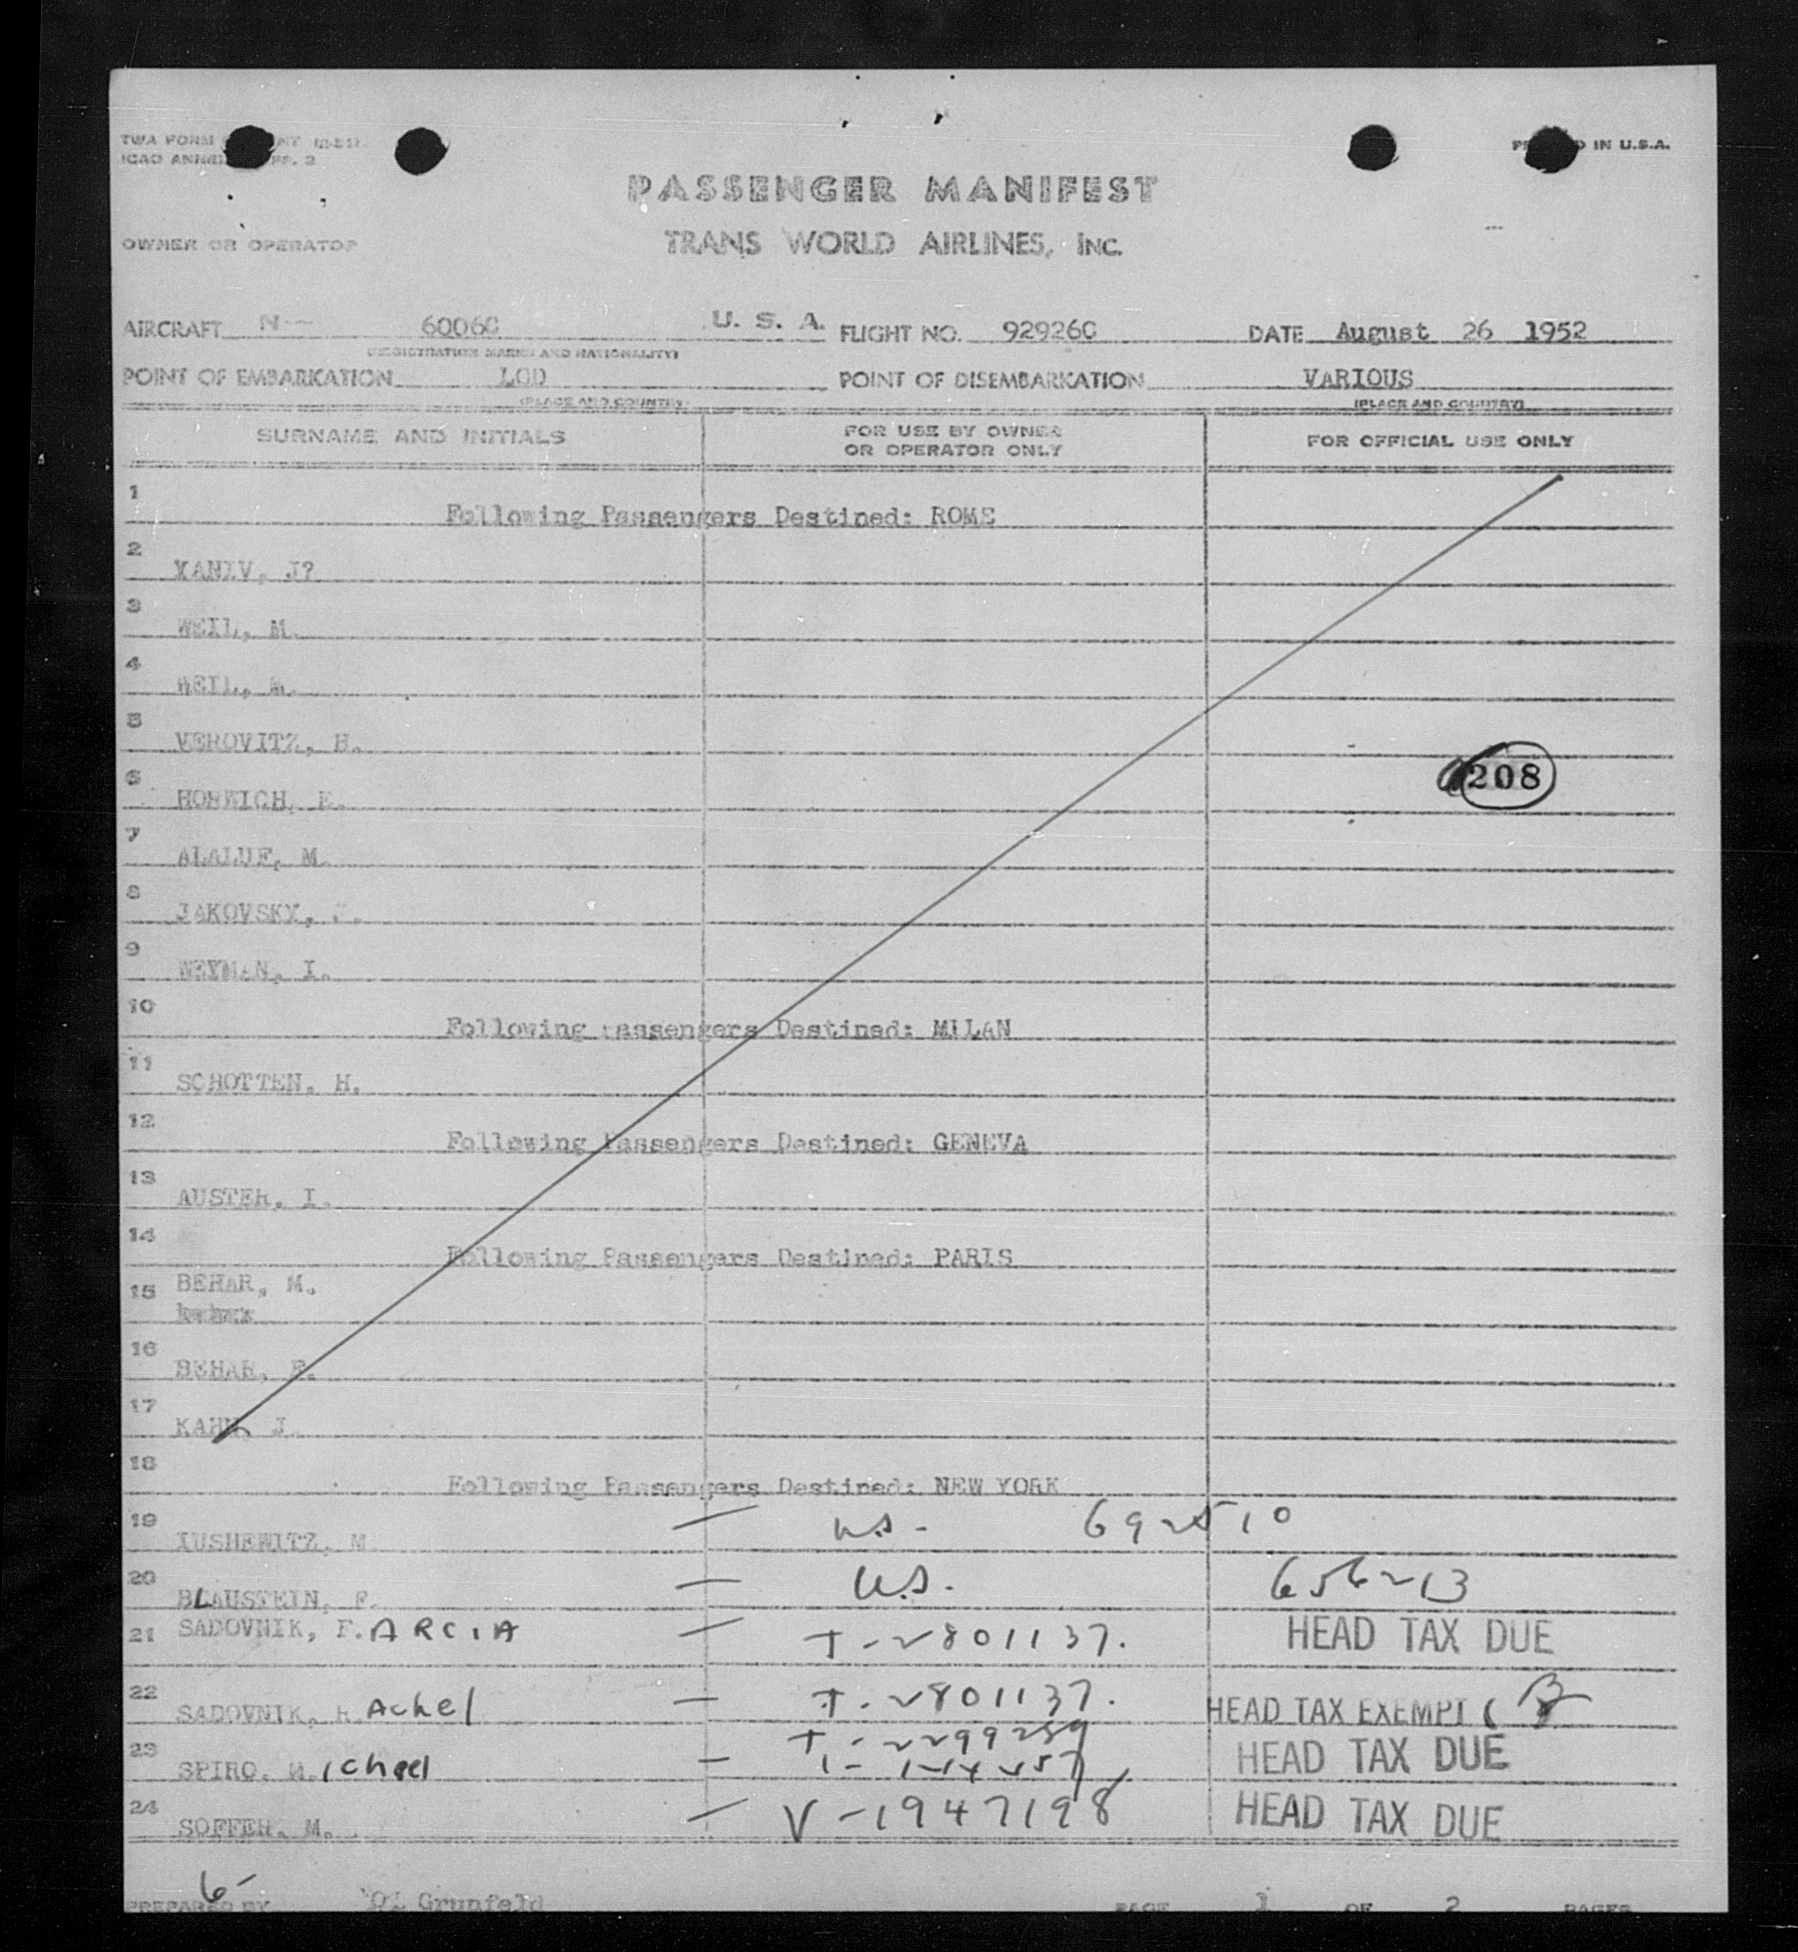 TWA FORM
ICAO ANNEX
IN U.S.A.
PASSENGER MANIFEST
OWNER OR OPERATOR TRANS WORLD AIRLINES, INC.
AIRCRAFT N-- 6006C U. S. A. FLIGHT NO. 92926C DATE August 26 1952
(REGISTRATION MARKS AND NATIONALITY)
POINT OF EMBARKATION LOD POINT OF DISEMBARKATION VARIOUS
(PLACE AND COUNTRY) (PLACE AND COUNTRY)
SURNAME AND INITIALS FOR USE BY OWNER OR OPERATOR ONLY FOR OFFICIAL USE ONLY
1 Following Passengers Destined: ROME
2 YANIV, J?
3 WEIL, M.
4 WEIL, M.
5 VEROVITZ, H.
6 HORWICH, E. 208
7 ALALUF, M.
8 JAKOVSKY,
9 WEYMAN, I.
10 Following Passengers Destined: MILAN
11 SCHOTTEN, H.
12 Following Passengers Destined: GENEVA
13 AUSTER, I.
14 Following Passengers Destined: PARIS
15 BEHAR, M.
16 BEHAR, R.
17 KAHN, J.
18 Following Passengers Destined: NEW YORK
19 IUSHEWITZ, M — U.S. - 692510
20 BLAUSTEIN, F. — U.S. 656213
21 SADOVNIK, F. ARCIA — T-2801137. HEAD TAX DUE
22 SADOVNIK, R. Achel — T-2801137. HEAD TAX EXEMPT (
23 SPIRO, M. ichael — T-2299259 HEAD TAX DUE
24 SOFFER, M. — V-1947198 HEAD TAX DUE
6-
PREPARED BY Grunfeld PAGE 1 OF 2 PAGES